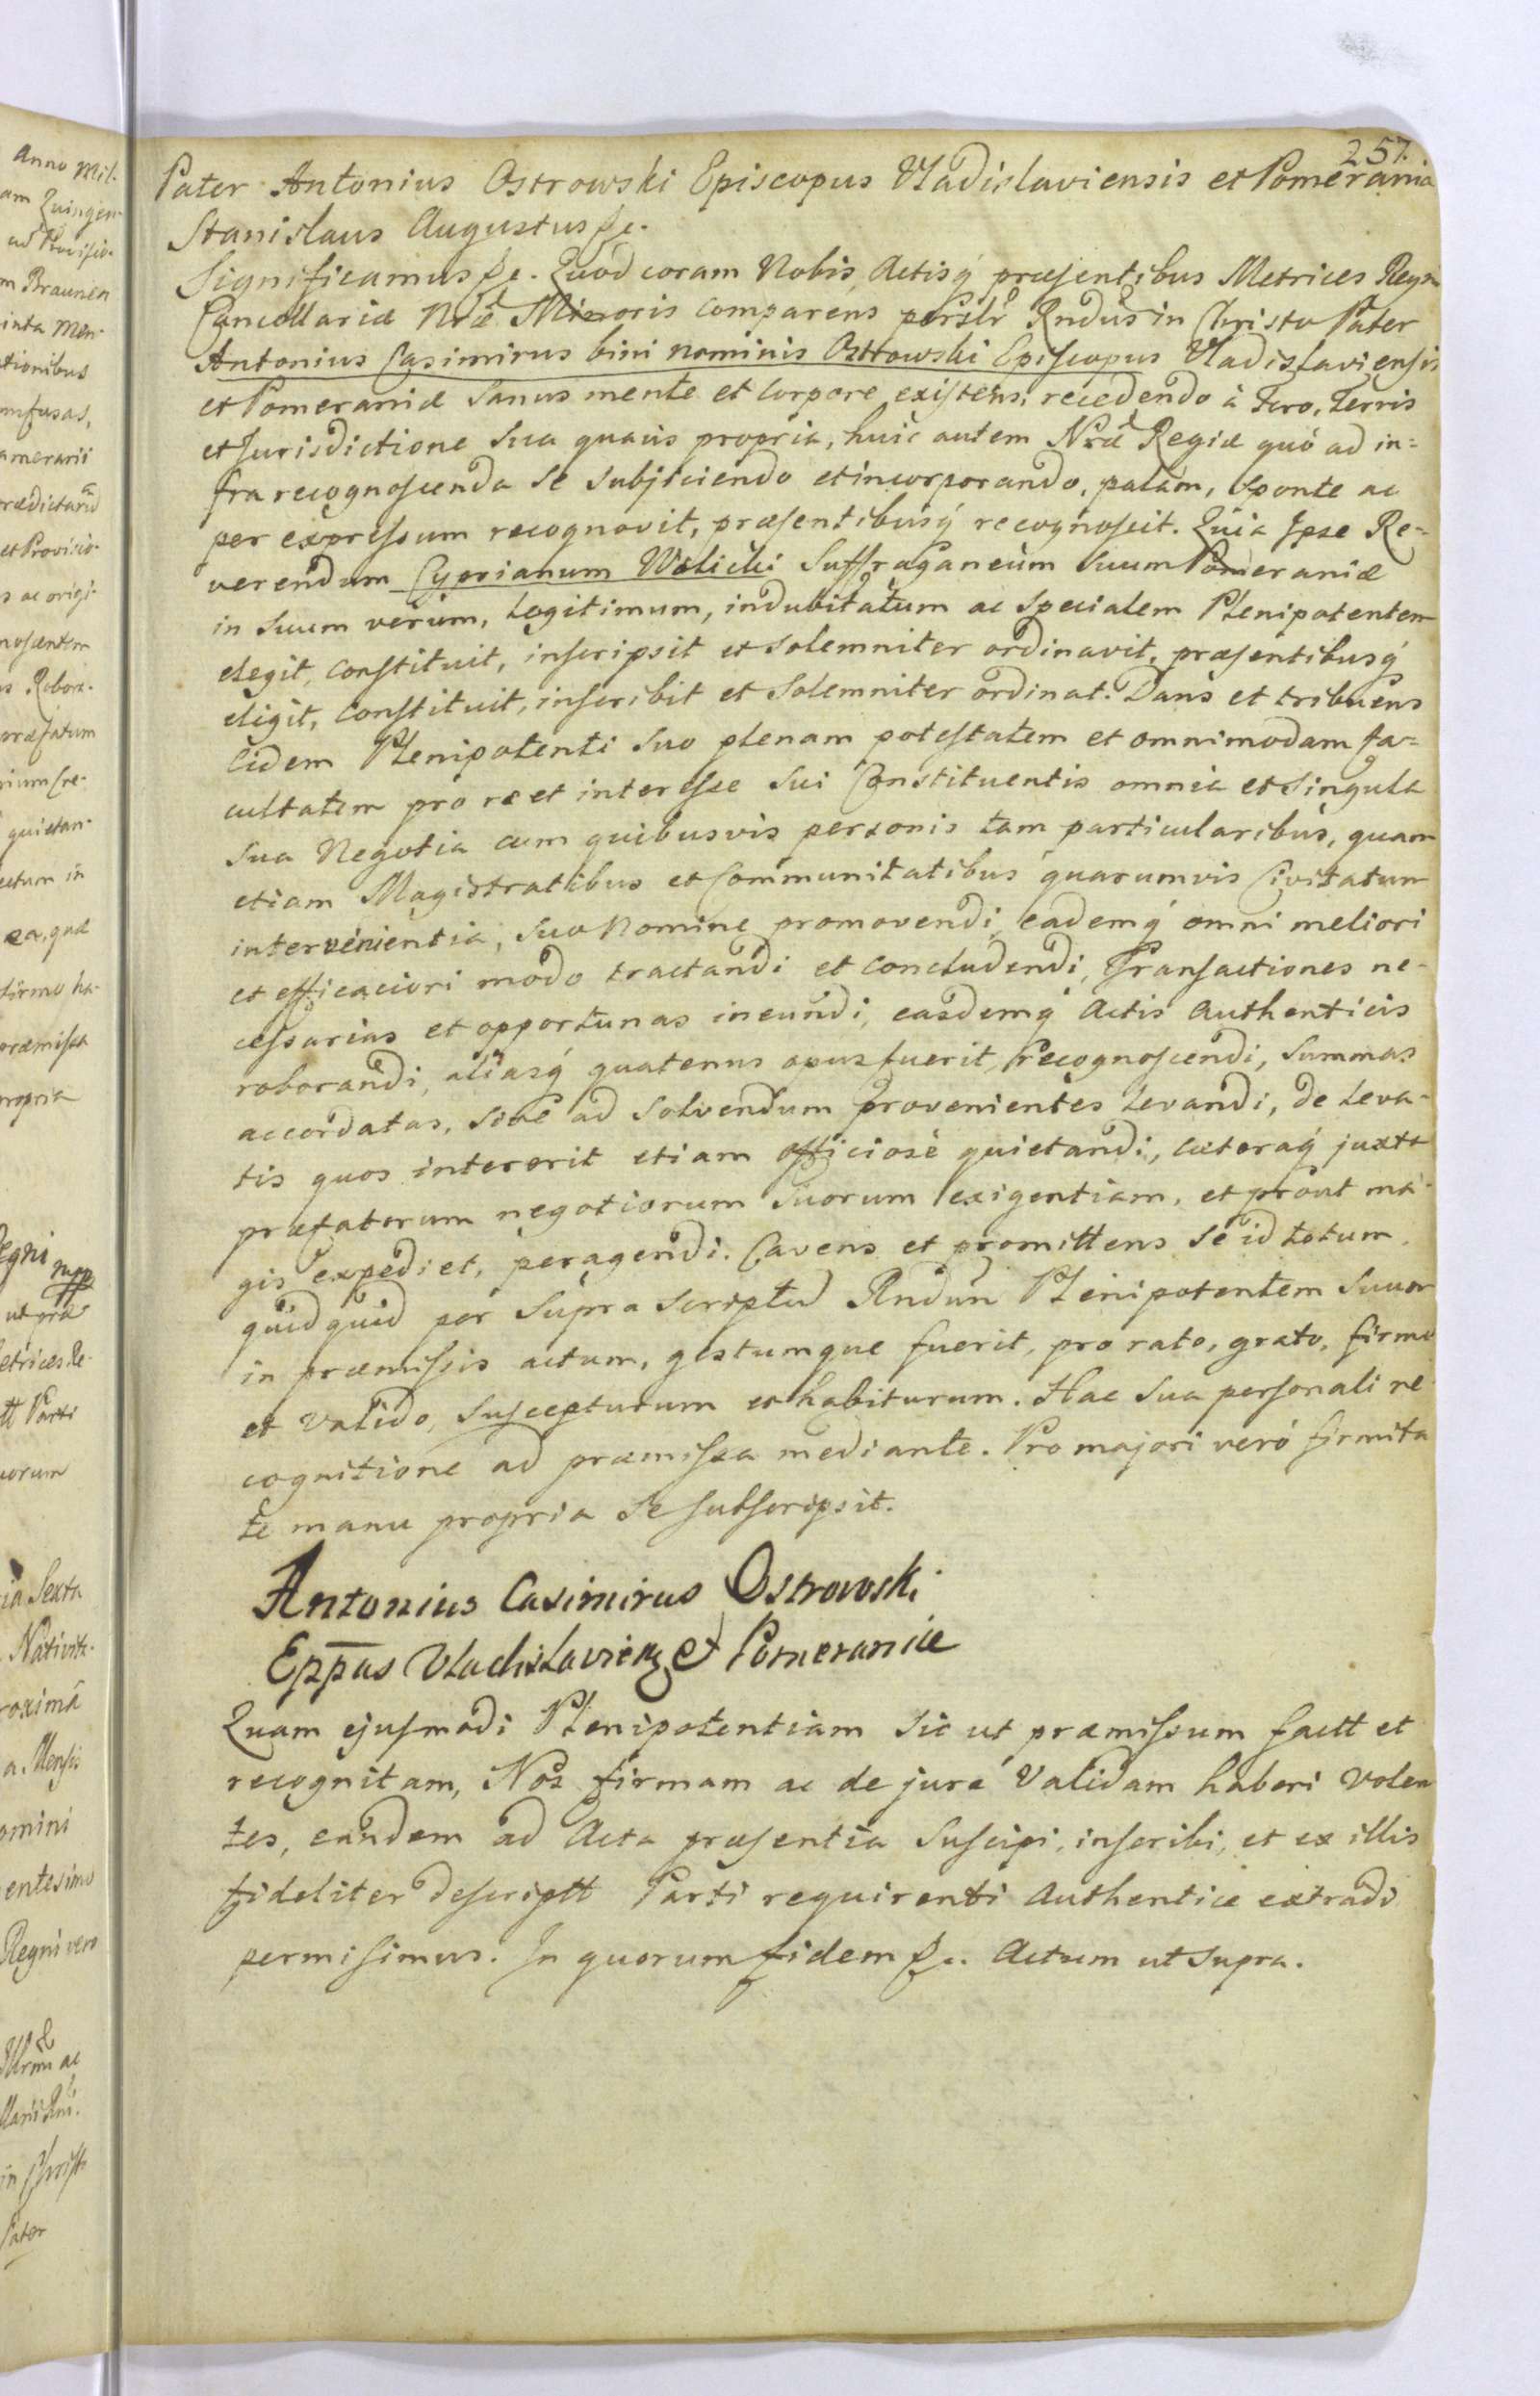 257.
Pater Antonius Ostrowski Episcopus Vladislaviensis et Pomerania
Stanislaus Augustus &c.
Significamus &c. Quod coram Nobis, Actisq́ præsentibus Metrices Regni
Cancellariæ Nræ Minoris comparens persłr Rndus in Christo Pater
Antonius Casimirus bini nominis Ostrowski Episcopus Vladislaviensis
et Pomeraniæ Sanus mente et Corpore existens, recedendo à Foro, Terris
et Jurisdictione Sua quavis propria, huic autem Nræ Regiæ quò ad in=
fra recognoscenda se subjiciendo et incorporando, palam, sponte ac
per expressum recognovit, præsentibusq́ recognoscit. Quia Ipse Re=
verendum Cyprianum Wolicki Suffraganeum Suum Pomeraniæ
in Suum verum, Legitimum, indubitatum ac Specialem Plenipotentem
elegit, constituit, inscripsit et Solemniter ordinavit, præsentibusq́
eligit, constituit, inscribit et Solemniter ordinat. Dans et tribuens
Eidem Plenipotenti Suo plenam potestatem et omnimodam fa=
cultatem pro re et interesse Sui Constituentis omnia et Singula
Sua Negotia cum quibusvis personis tam particularibus, quam
etiam Magistratibus et Communitatibus quarumvis Civitatum
intervenientia, Suo Nomine promovendi, eademq́ omni meliori
et efficaciori modo tractandi et Concludendi, Transactiones ne-
cessarias et opportunas ineundi, easdemq́ Actis Authenticis
roborandi, aliasq́ quatenus opus fuerit, recognoscendi, Summas
accordatas, Sive ad Solvendum provenientes Levandi, de Leva-
tis quos intererit etiam officiosè quietandi, cæteraq́ juxta
præfatorum negotiorum Suorum exigentiam, et prout ma-
gis expediet, peragendi. Cavens et promittens Se id totum
quidquid per Supra scriptum Rndum Plenipotentem Suum
in præmissis actum, gestumque fuerit, pro rato, grato, firmo
et valido, Suscepturum et habiturum. Hac Sua personali re
cognitione ad præmissa mediante. Pro majori verò firmita
te manu propria Se Subscripsit.
Antonius Casimirus Ostrowski
Eppus Vladislavien et Pomeraniæ
Quam ejusmodi Plenipotentiam Sic ut præmissum factt et
recognitam, Nos firmam ac de jure validam haberi Volen
tes, eandem ad Acta præsentia Suscipi, inscribi, et ex illis
fideliter descriptt Parti requirenti Authenticè extradi
permisimus. In quorum fidem &c. Actum ut Supra.